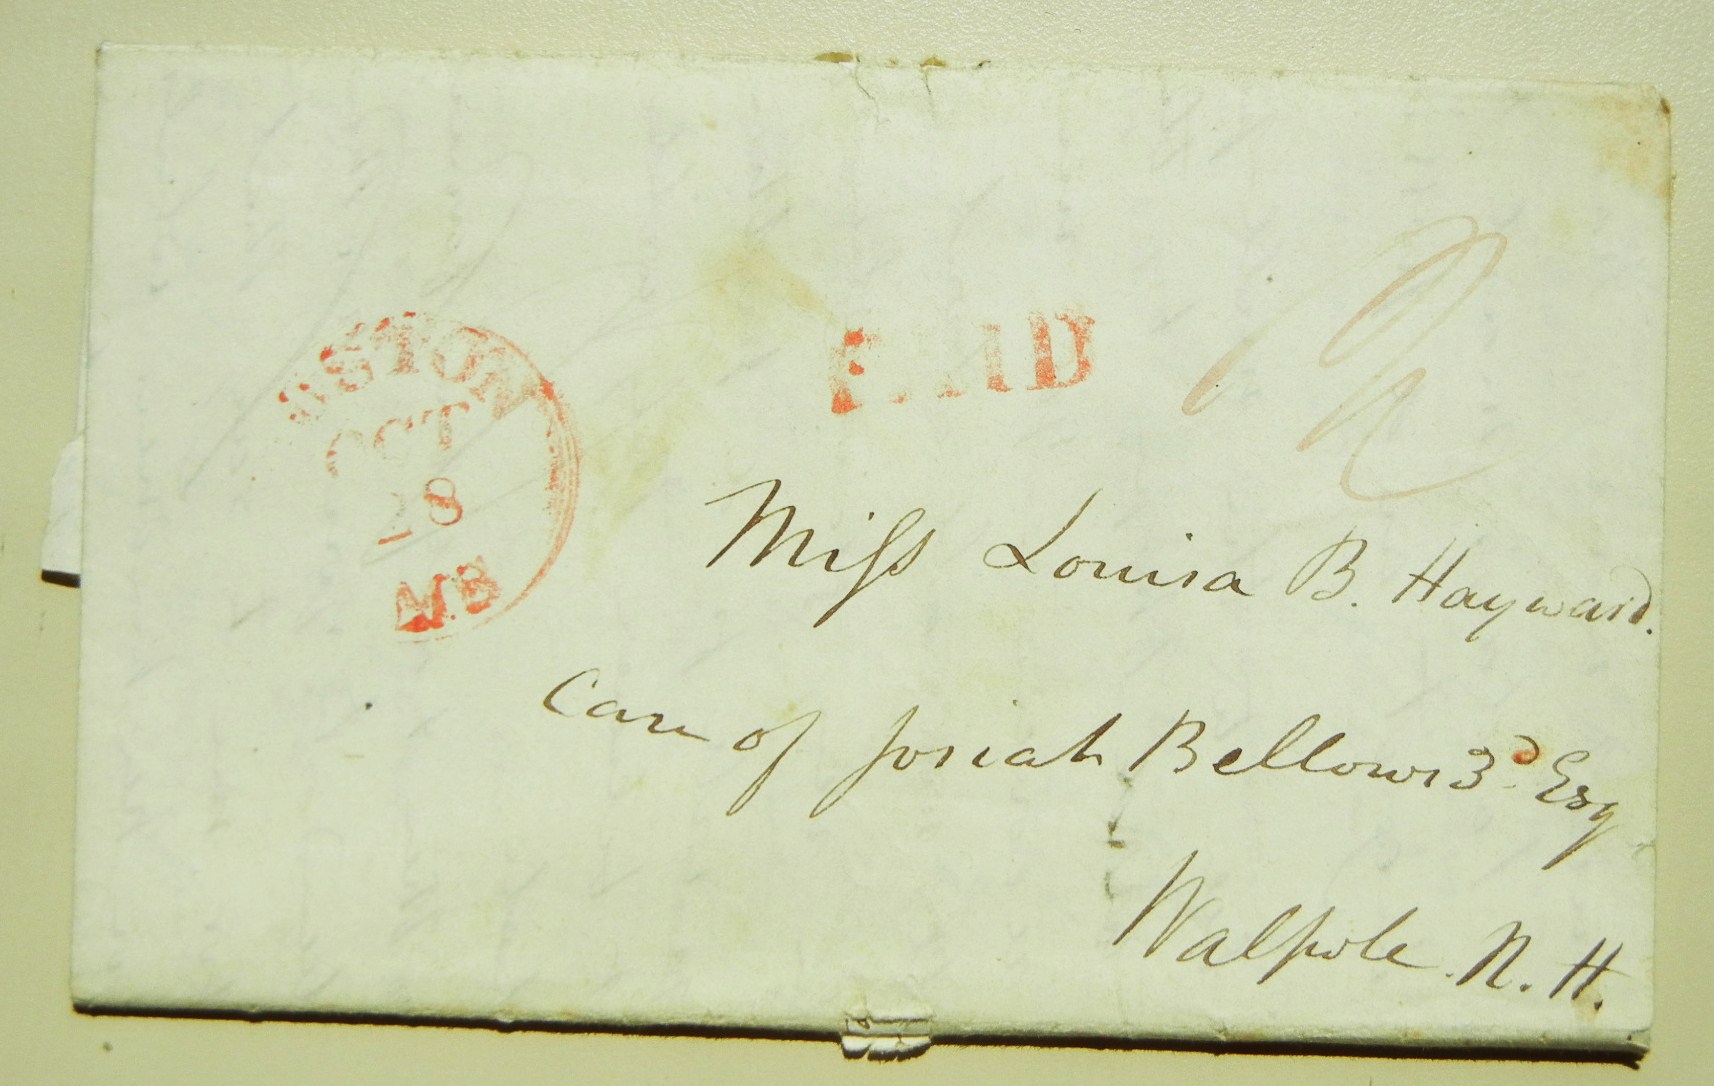 BOSTON
OCT
28
MS
PAID
12
Miss Louisa B. Hayward.
Care of Josiah Bellows 3d Esq
Walpole. N. H.